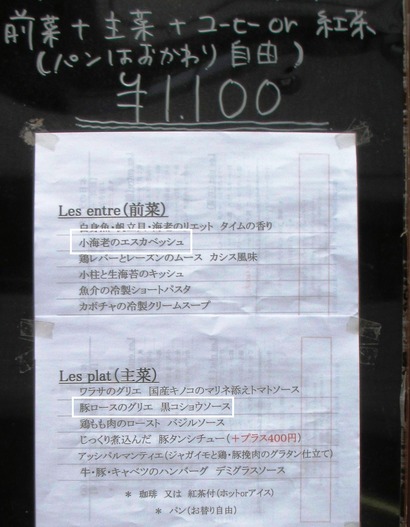 前菜+主菜+コーヒーor 紅茶
(パンはおかわり自由)
¥1.100
Les entre(前菜)
白身魚・帆立貝・海老のリエット タイムの香り
小海老のエスカベッシュ
鶏レバーとレーズンのムース カシス風味
小柱と生海苔のキッシュ
魚介の冷製ショートパスタ
カボチャの冷製クリームスープ
Les plat(主菜)
ワラサのグリエ 国産キノコのマリネ添えトマトソース
豚ロースのグリエ 黒コショウソース
鶏もも肉のロースト バジルソース
じっくり煮込んだ 豚タンシチュー(+プラス400円)
アッシパルマンティエ(ジャガイモと鶏・豚挽肉のグラタン仕立て)
牛・豚・キャベツのハンバーグ デミグラスソース
* 珈琲 又は 紅茶付(ホットorアイス)
* パン(お替り自由)